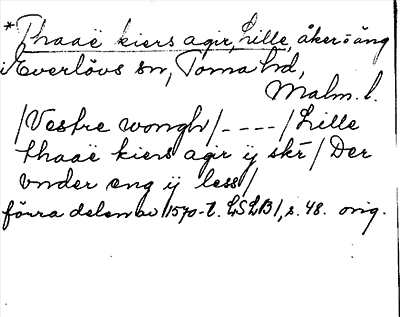 * Thaaë kiers agir, Lille, åker o äng
i Everlövs sn, Torna hd,
Malm. l.
/Vestre wongh/ _ _ _ _ / Lille
thaaë kiers agir ij skr / Der
vnder eng ij less /
förra delen av 1570-t. LSLB 1, s. 48. orig.